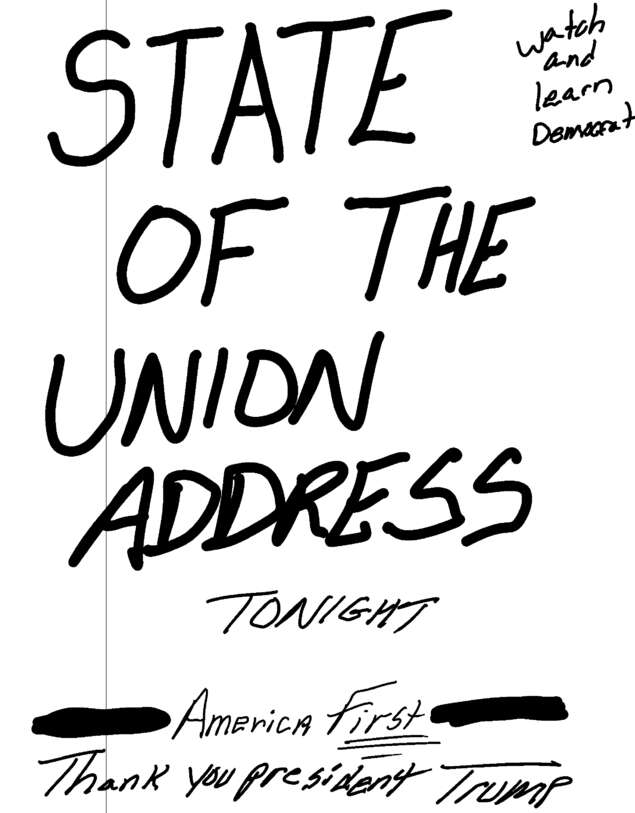 STATE
OF THE
UNION
ADDRESS
watch
and
learn
Democrat
TONIGHT
America First
Thank you president Trump